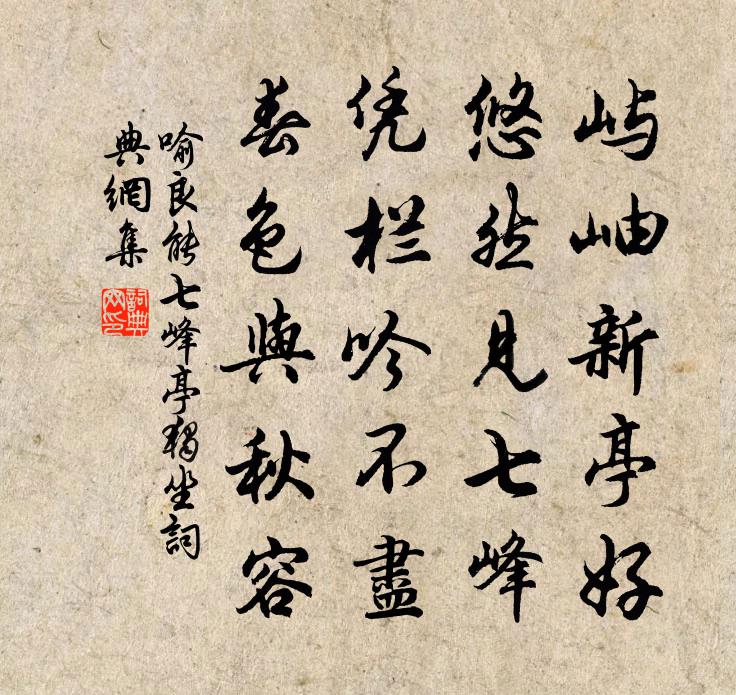 屿岫新亭好
悠然見七峰
凭栏吟不盡
春色與秋容
喻良能七峰亭獨坐詞
典網集
詞典網印